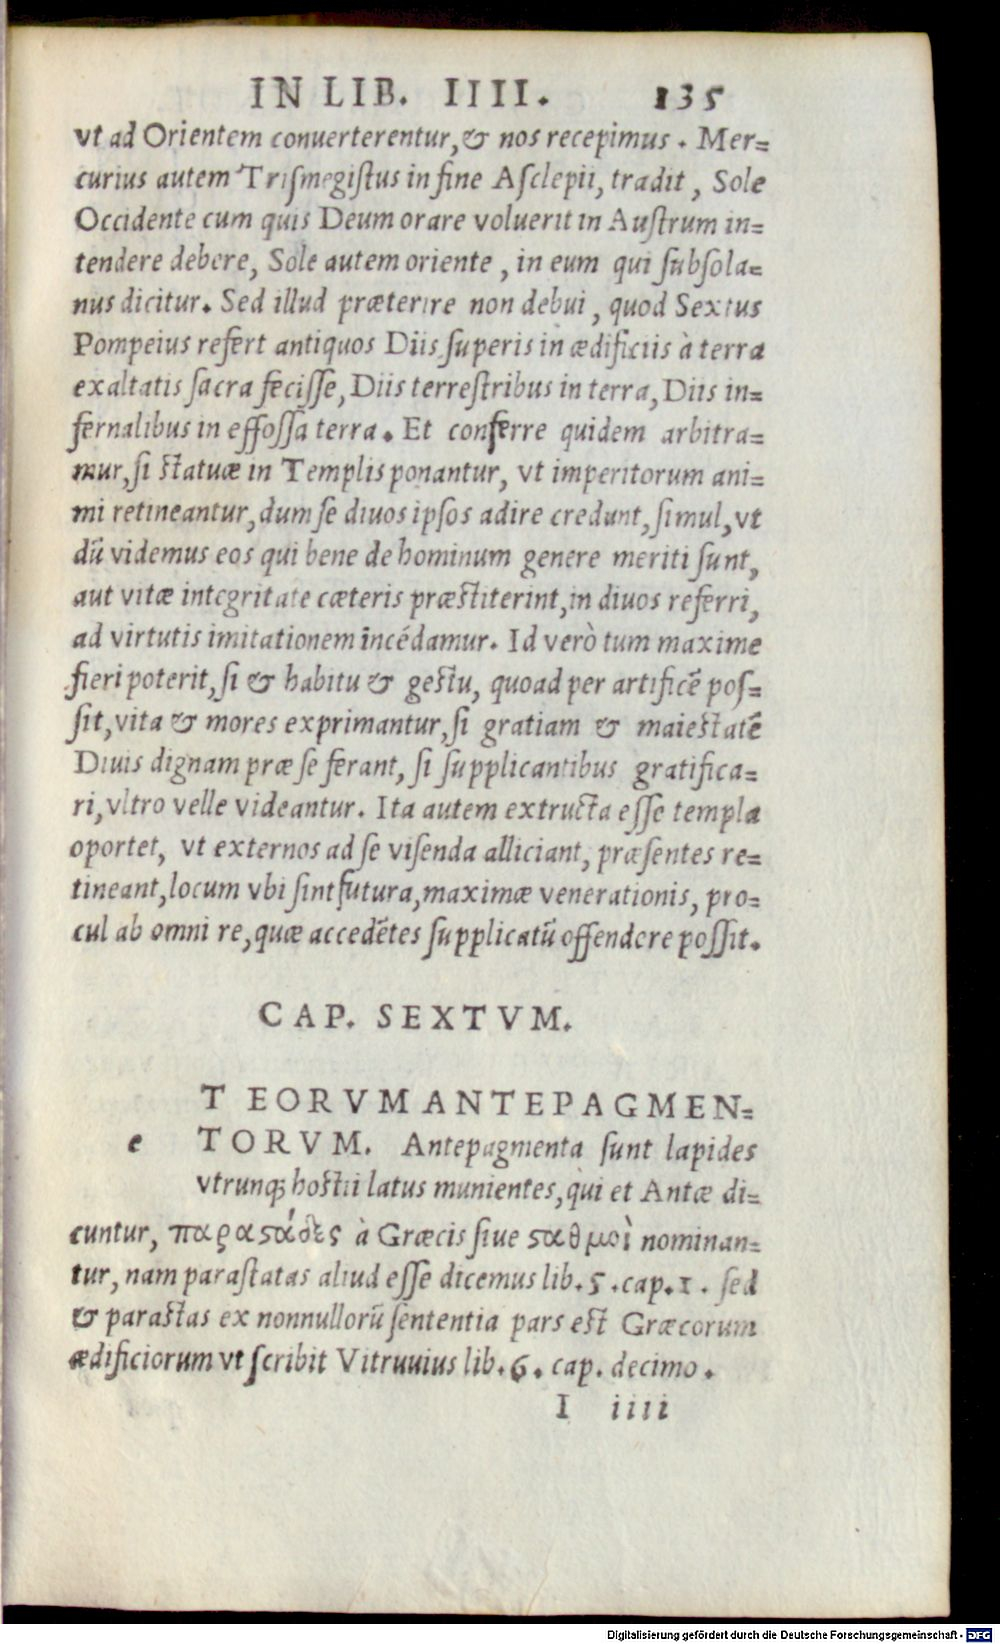 IN LIB. IIII. 135
vt ad Orientem conuerterentur, & nos recepimus. Mer=
curius autem Triſmegiſtus in fine Aſclepii, tradit, Sole
Occidente cum quis Deum orare voluerit in Auſtrum in=
tendere debere, Sole autem oriente, in eum qui ſubſola=
nus dicitur. Sed illud præterire non debui, quod Sextus
Pompeius refert antiquos Diis ſuperis in ædificiis à terra
exaltatis ſacra feciſſe, Diis terreſtribus in terra, Diis in=
fernalibus in effoſſa terra. Et conferre quidem arbitra=
mur, ſi ſtatuæ in Templis ponantur, vt imperitorum ani=
mi retineantur, dum ſe diuos ipſos adire credunt, ſimul, vt
dū videmus eos qui bene de hominum genere meriti ſunt,
aut vitæ integritate cæteris præſtiterint, in diuos referri,
ad virtutis imitationem incédamur. Id verò tum maxime
fieri poterit, ſi & habitu & geſtu, quoad per artificē poſ=
ſit, vita & mores exprimantur, ſi gratiam & maieſtatē
Diuis dignam præ ſe ferant, ſi ſupplicantibus gratifica=
ri, vltro velle videantur. Ita autem extructa eſſe templa
oportet, vt externos ad ſe viſenda alliciant, præſentes re=
tineant, locum vbi ſint futura, maximæ venerationis, pro=
cul ab omni re, quæ accedētes ſupplicatū offendere poſſit.
CAP. SEXTVM.
T EORVM ANTEPAGMEN=
e TORVM. Antepagmenta ſunt lapides
vtrunq; hoſtii latus munientes, qui et Antæ di=
cuntur, παραϛάδες à Græcis ſiue ϛαθμοὶ nominan=
tur, nam paraſtatas aliud eſſe dicemus lib. 5. cap. 1. ſed
& paraſtas ex nonnullorū ſententia pars eſt Græcorum
ædificiorum vt ſcribit Vitruuius lib. 6. cap. decimo.
I iiii
Digitalisierung gefördert durch die Deutsche Forschungsgemeinschaft - DFG